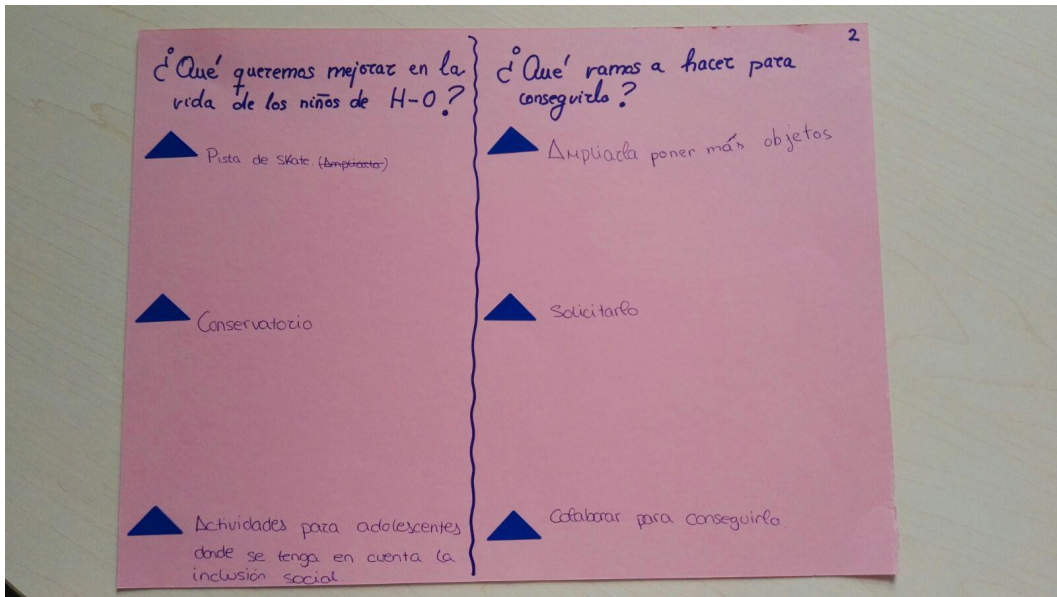 2
¿Qué queremos mejorar en la
vida de los niños de H-O?
Pista de Skate. (Ampliarla)
Conservatorio
Actividades para adolescentes
donde se tenga en cuenta la
inclusión social
¿Qué vamos a hacer para
conseguirlo?
Ampliarla poner más objetos
Solicitarlo
Colaborar para conseguirlo.